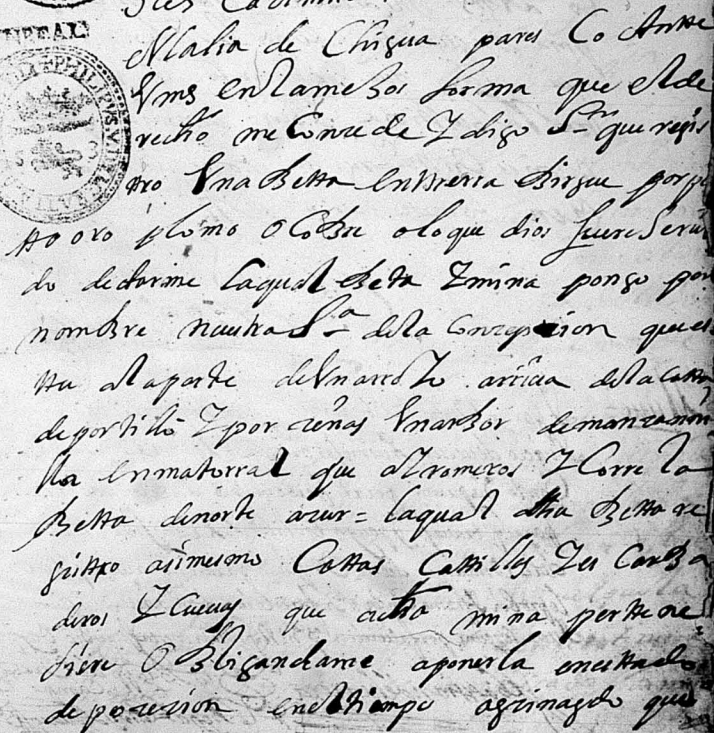 Maria de Chigua paresco Antte
Vms en la mejor forma que el de
recho me Consede Y digo Sr que regis
tro Vna Betta en tierra Birgen por pla
tta oro plomo O Cobre o lo que dios fuere Serui
do de darme la qual Beta Y mina pongo por
nombre nuestra Sra de la Conzepzion que es
tta a la parte de Vn arroYo arriua de la Catta
de portillo Y por señas Vn arbor de manzani
lla en matorral que ai romeros Y Corre la
Betta de norte a sur = la qual dha Betta re
gisttro asimesmo Cattas Cattillas Y es Carba
deros Y Cuebas que a dha mina pertene
siere O Bligandome a ponerla en esttado
de posezion en el tiempo asinado que